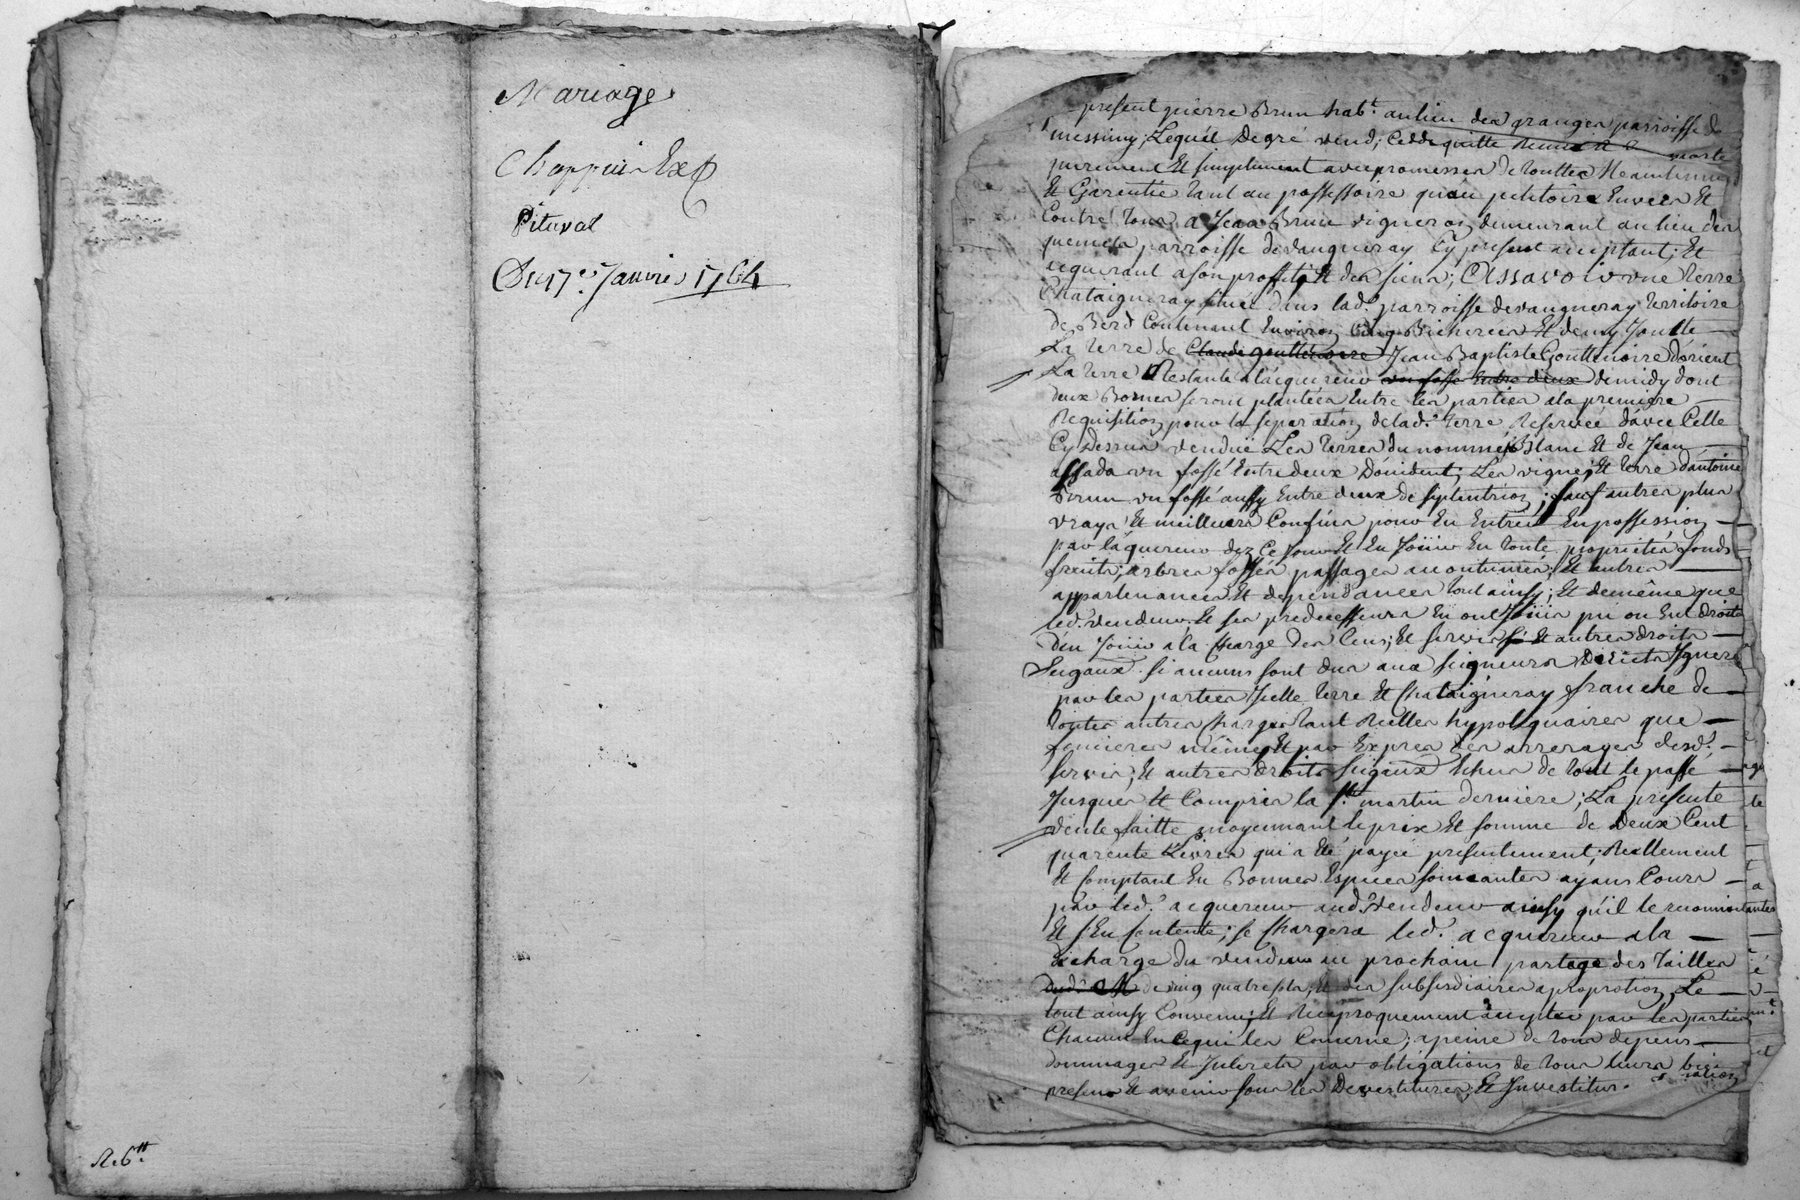 Mariage
Chappuis Et
Pitaval
Du 17e. Janvier 1764
R. 6tt
present pierre Brun habt. au lieu des granges parroisse de
messimy; Lequel De gré vend, Cedde quitte Remet
purement Et simplement avec promesses de touttes Maintenue
Et Garentie tant au possessoire qu'au petitoire Envers Et
Contre tous, a Jean Brun vigneron demeurant au lieu des
parroisse de vaugneray Cy present acceptant; Et
acquerant a son proffit Et des siens; Assavoir une terre
Chataigneray situeé dans lad. parroisse de vaugneray territoire
de Berd Contenant Environ Cinq Bicherées Et demy Joutte
La terre de Claude gouttenoire Jean Baptiste Gouttenoire d'orient
La terre Restante a l'acquereur un fossé Entre deux de midy dont
deux Bornes seront plantées Entre les parties a la premiere
Requisition pour la separation de lad. terre Reservée d'avec Celle
Cy Dessus vendüe Les terres du nommé Blanc Et de Jean
assada un fossé Entre deux d'occident; Les vigne, Et terre d'antoine
Brun un fossé aussy Entre deux de septentrion; sauf autres plus
vrays Et meilleurs Confins pour En Entrer En possession
par l'aquereur dez Ce Jour Et En Joüir En toute proprietés fonds
fruits, arbres fossés passages acoutumés, Et autres
appartenances Et dependances tout ainsy; Et de même que
led. vendeur Et ses predecesseurs En ont Joüis pû ou Eut droits
d'en Joüir a la Charge des Cens, Et servis Et autres droits
Seigaux si aucuns sont dus aux seigneurs Directs Ignorés
par les parties Icelle terre Et Chataigneray franche de
toutes autres Charges tant Reelles hypotequaires que
foncieres même Et par Exprés des arrerages desd.
servis, Et autres droits seigaux Echus de tout le passé
Jusques Et Compris la St. martin derniere; La presente
vente faitte moyennant le prix Et somme de Deux Cent
quarente Livres qui a Eté payée presentement, Reellement
Et Comptant En Bonnes Especes sonnantes ayans Cours
par led. acquereur aud. vendeur ainsy qu'il le reconnoit
Et s'En Contente; se Chargera led. acquereur a la
décharge du vendeur au prochain partage des tailles
de cinq quatre sols, Et des subsidiaires a proprotion, Le
tout ainsy Convenu, Et Reciproquement accepté par les parties
Chacune En Ce qui les Concerne; a peine de tous depens
dommages Et Interets par obligations de tous leurs biens
presens Et avenir sous les Devestitures, Et Investitur.